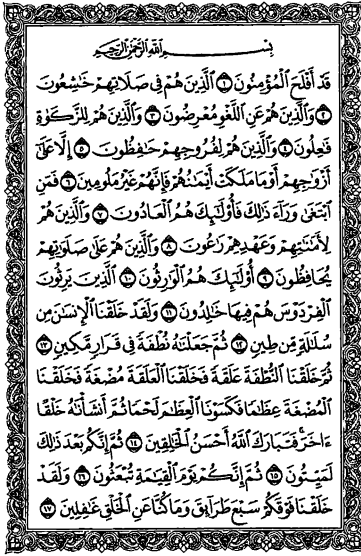 بِسْمِ اللَّهِ الرَّحْمَٰنِ الرَّحِيمِ
قَدْ أَفْلَحَ الْمُؤْمِنُونَ ١ الَّذِينَ هُمْ فِي صَلَاتِهِمْ خَٰشِعُونَ
٢ وَالَّذِينَ هُمْ عَنِ اللَّغْوِ مُعْرِضُونَ ٣ وَالَّذِينَ هُمْ لِلزَّكَوٰةِ
فَٰعِلُونَ ٤ وَالَّذِينَ هُمْ لِفُرُوجِهِمْ حَٰفِظُونَ ٥ إِلَّا عَلَىٰ
أَزْوَٰجِهِمْ أَوْ مَا مَلَكَتْ أَيْمَٰنُهُمْ فَإِنَّهُمْ غَيْرُ مَلُومِينَ ٦ فَمَنِ
ابْتَغَىٰ وَرَآءَ ذَٰلِكَ فَأُو۟لَٰٓئِكَ هُمُ الْعَادُونَ ٧ وَالَّذِينَ هُمْ
لِأَمَٰنَٰتِهِمْ وَعَهْدِهِمْ رَٰعُونَ ٨ وَالَّذِينَ هُمْ عَلَىٰ صَلَوَٰتِهِمْ
يُحَافِظُونَ ٩ أُو۟لَٰٓئِكَ هُمُ الْوَٰرِثُونَ ١٠ الَّذِينَ يَرِثُونَ
الْفِرْدَوْسَ هُمْ فِيهَا خَٰلِدُونَ ١١ وَلَقَدْ خَلَقْنَا الْإِنسَٰنَ مِن
سُلَٰلَةٍ مِّن طِينٍ ١٢ ثُمَّ جَعَلْنَٰهُ نُطْفَةً فِي قَرَارٍ مَّكِينٍ ١٣
ثُمَّ خَلَقْنَا النُّطْفَةَ عَلَقَةً فَخَلَقْنَا الْعَلَقَةَ مُضْغَةً فَخَلَقْنَا
الْمُضْغَةَ عِظَٰمًا فَكَسَوْنَا الْعِظَٰمَ لَحْمًا ثُمَّ أَنشَأْنَٰهُ خَلْقًا
ءَاخَرَ فَتَبَارَكَ اللَّهُ أَحْسَنُ الْخَٰلِقِينَ ١٤ ثُمَّ إِنَّكُم بَعْدَ ذَٰلِكَ
لَمَيِّتُونَ ١٥ ثُمَّ إِنَّكُمْ يَوْمَ الْقِيَٰمَةِ تُبْعَثُونَ ١٦ وَلَقَدْ
خَلَقْنَا فَوْقَكُمْ سَبْعَ طَرَآئِقَ وَمَا كُنَّا عَنِ الْخَلْقِ غَٰفِلِينَ ١٧